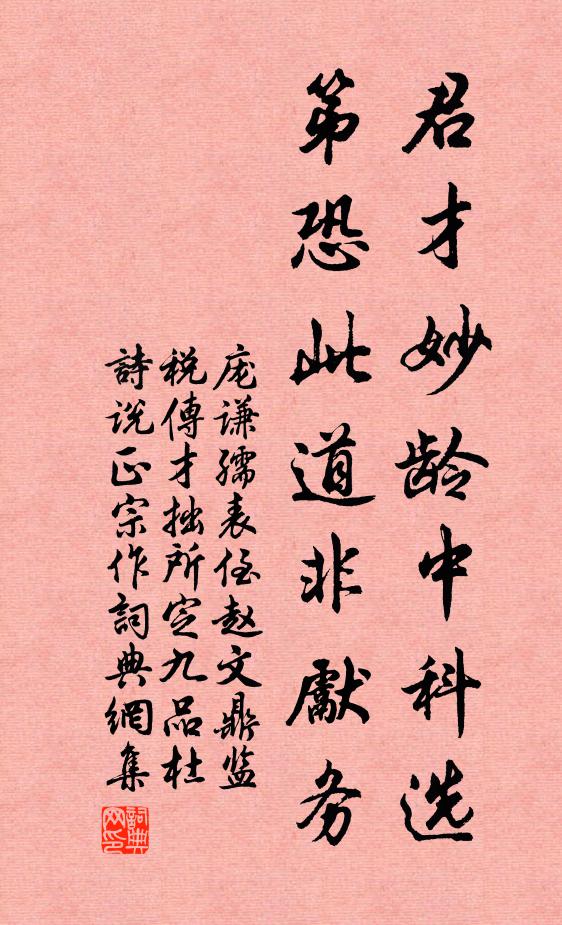 君才妙龄中科选
第恐此道非猷务
庞谦孺表侄赵文鼎监
税傳才拙所定九品杜
詩说正宗作詞典網集
詞典网印